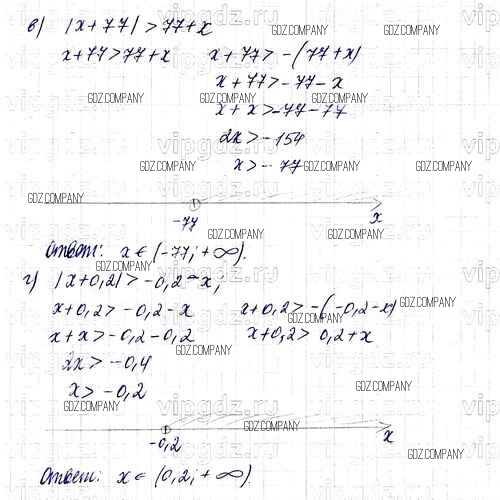 в) |x+77| > 77+x
x+77>77+x x+77 > -(77+x)
x+77 > -77-x
x+x > -77-77
2x > -154
x > -77
-77 x
Ответ: x ∈ (-77; +∞).
г) |x+0,2| > -0,2-x;
x+0,2 > -0,2-x x+0,2 > -(-0,2-x)
x+x > -0,2-0,2 x+0,2 > 0,2+x
2x > -0,4
x > -0,2
-0,2 x
Ответ: x ∈ (0,2; +∞)
GDZ.COMPANY
vipgdz.ru